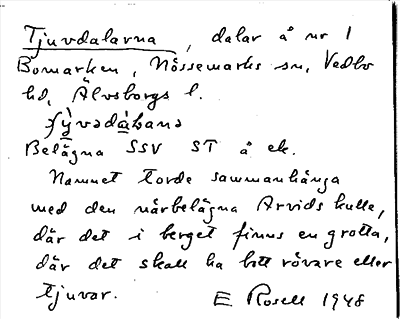 Tjuvdalarna, dalar å nr 1
Bomarken, Nössemarks sn, Vedbo
hd, Älvsborgs l.
Belägna SSV ST å ek.
Namnet torde sammanhänga
med den närbelägna Arvids kulle,
där det i berget finns en grotta,
där det skall ha bott rövare eller
tjuvar. E. Rosell 1948